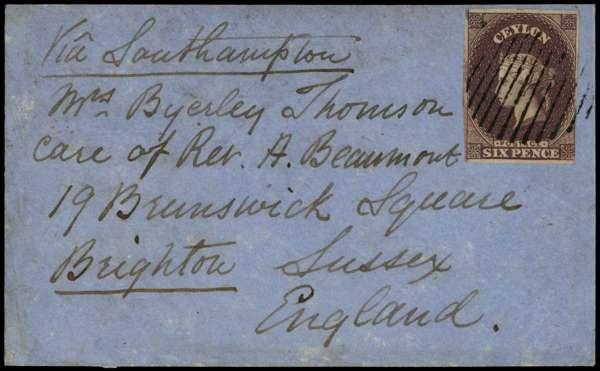 Via Southampton
Mrs Byerley Thomson
care of Rev. A. Beaumont
19 Brunswick Square
Brighton Sussex
England.
CEYLON
POSTAGE
SIX PENCE